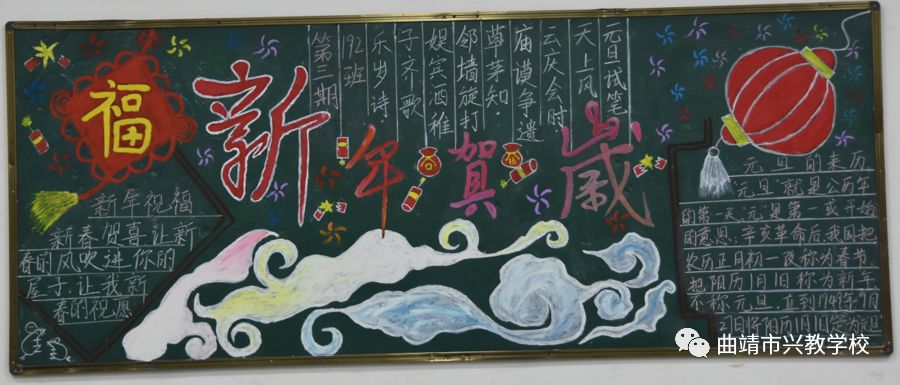 福
新年賀歲
元旦试笔
天上风
云庆会时
庙谟争遗
草茅知。
邻墙旋打
娱宾酒稚
子齐歌
乐岁诗
192班
第三期
新年祝福
新春贺喜,让新
春的风吹进你的
屋子,让我新
春的祝愿
元旦的来历
"元旦"就是公历年
的第一天"元"是第一或开始
的意思.辛亥革命后,我国把
农历正月初一改称为春节
把阳历1月1日称为新年
不称元旦,直到1949年9月
27日将阳历1月1日定为元旦
曲靖市兴教学校